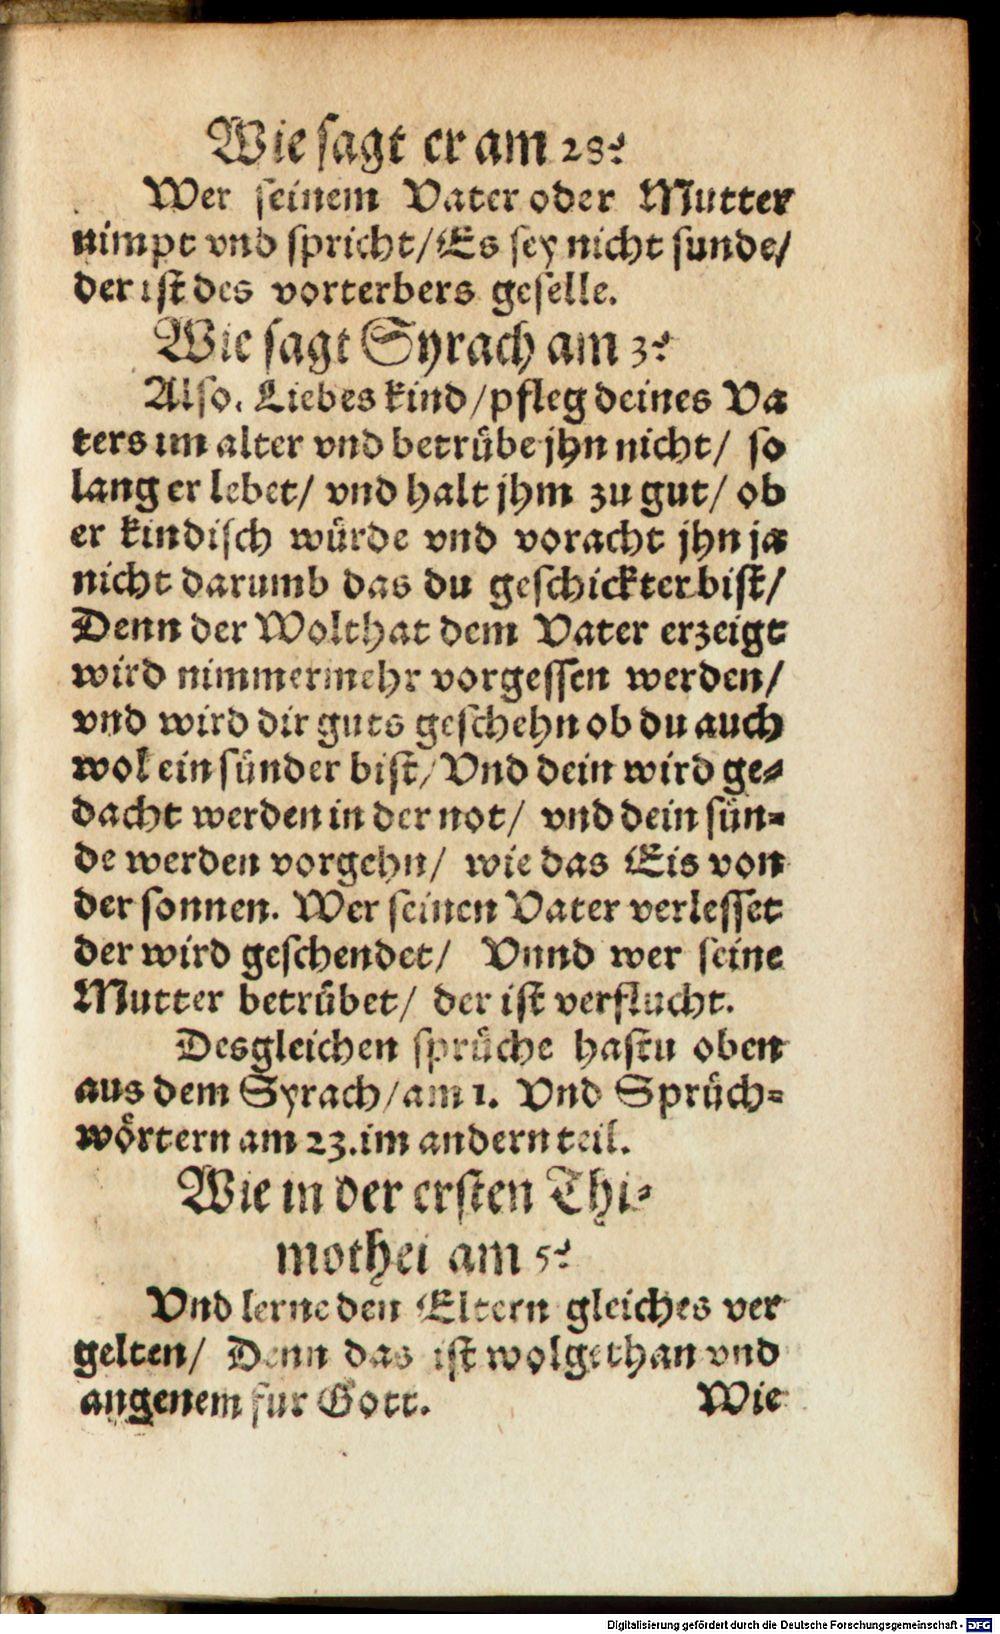 Wie sagt er am 28?
Wer seinem Vater oder Mutter
nimpt vnd spricht/Es sey nicht sunde/
der ist des vorterbers geselle.
Wie sagt Syrach am 3?
Also. Liebes kind/pfleg deines Va
ters im alter vnd betrübe jhn nicht/ so
lang er lebet/ vnd halt jhm zu gut/ ob
er kindisch würde vnd voracht jhn ja
nicht darumb das du geschickter bist/
Denn der Wolthat dem Vater erzeigt
wird nimmermehr vorgessen werden/
vnd wird dir guts geschehn ob du auch
wol ein sünder bist/Vnd dein wird ge-
dacht werden in der not/ vnd dein sün-
de werden vorgehn/ wie das Eis von
der sonnen. Wer seinen Vater verlesset
der wird geschendet/ Vnnd wer seine
Mutter betrübet/ der ist verflucht.
Desgleichen sprüche hastu oben
aus dem Syrach/am 1. Vnd Sprüch-
wörtern am 23.im andern teil.
Wie in der ersten Thi-
mothei am 5?
Vnd lerne den Eltern gleiches ver
gelten/ Denn das ist wolgethan vnd
angenem fur Gott. Wie
Digitalisierung gefördert durch die Deutsche Forschungsgemeinschaft - DFG